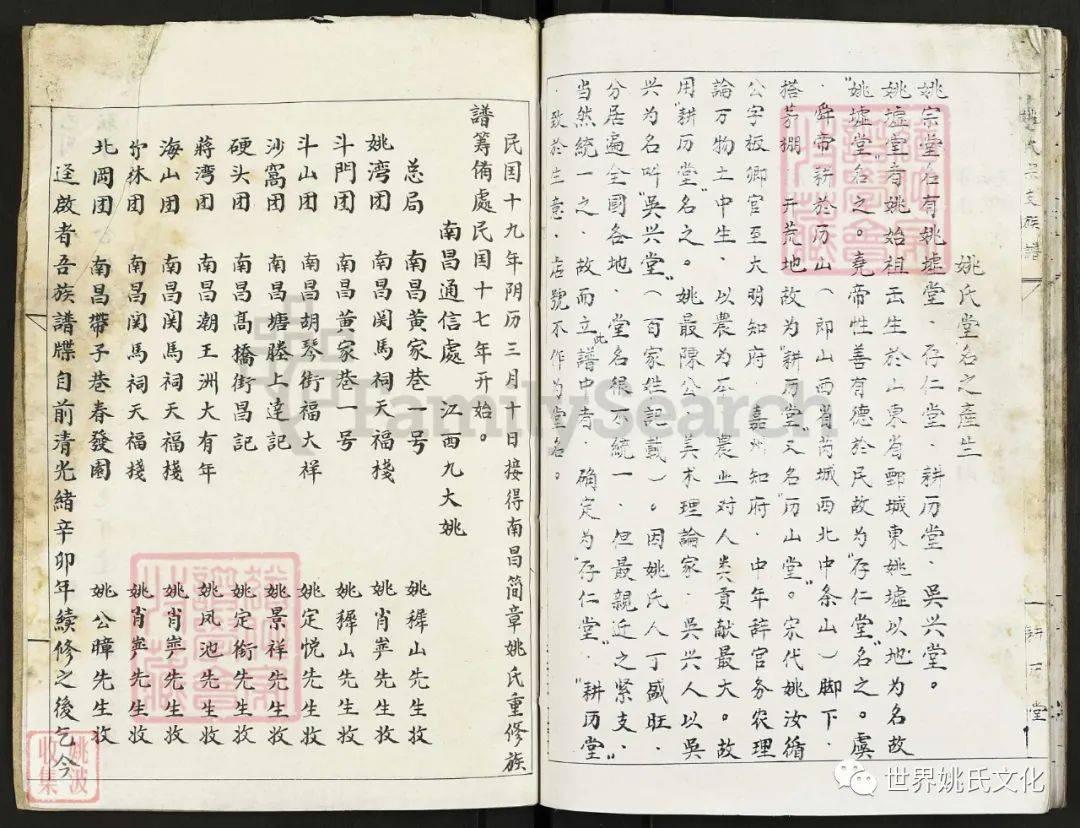 姚氏堂名之產生
姚宗堂名有姚墟堂、存仁堂、耕历堂、吳兴堂。
姚墟堂者姚始祖舜生於山东省鄄城東姚墟以地为名故
"姚墟堂"名之。堯帝性善有德於民故为"存仁堂"名之。虞
舜帝耕於历山（即山西省芮城西北中条山）脚下.
搭茅棚.开荒地故为"耕历堂"又名"历山堂"。宋代姚汝循
公字板卿官至大明知府.嘉州知府.中年辞官务农理
論万物土中生.以農为本.農业对人类貢献最大。故
用"耕历堂"名之。姚最陳公.美术理論家.吳兴人以吳
兴为名叫"吳兴堂"（百家姓記載）。因姚氏人丁盛旺.
分居遍全國各地.堂名很不統一.但最親近之緊支.
当然統一之.故而立此譜中者.确定为"存仁堂""耕历堂"
.致於生意.店號不作为堂名。
耕历堂
民国十九年阴历三月十日接得南昌简章姚氏重修族
譜筹備處民国十七年开始。
南昌通信處 江西九大姚
总局 南昌黄家巷一号 姚樨山先生收
姚湾团 南昌関馬祠天福棧 姚肖寧先生收
斗門团 南昌黄家巷一号 姚樨山先生收
斗山团 南昌胡琴街福大祥 姚定悦先生收
沙窩团 南昌塘塍上達記 姚景祥先生收
硬头团 南昌髙橋街昌記 姚定銜先生收
蔣湾团 南昌潮王洲大有年 姚凤池先生收
海山团 南昌関馬祠天福棧 姚肖寧先生收
林团 南昌関馬祠天福棧 姚肖寧先生收
北岡团 南昌帶子巷春發園 姚公暲先生收
逕啟者吾族譜牒自前清光緒辛卯年續修之後乞今
姚波
收集
FamilySearch
世界姚氏文化